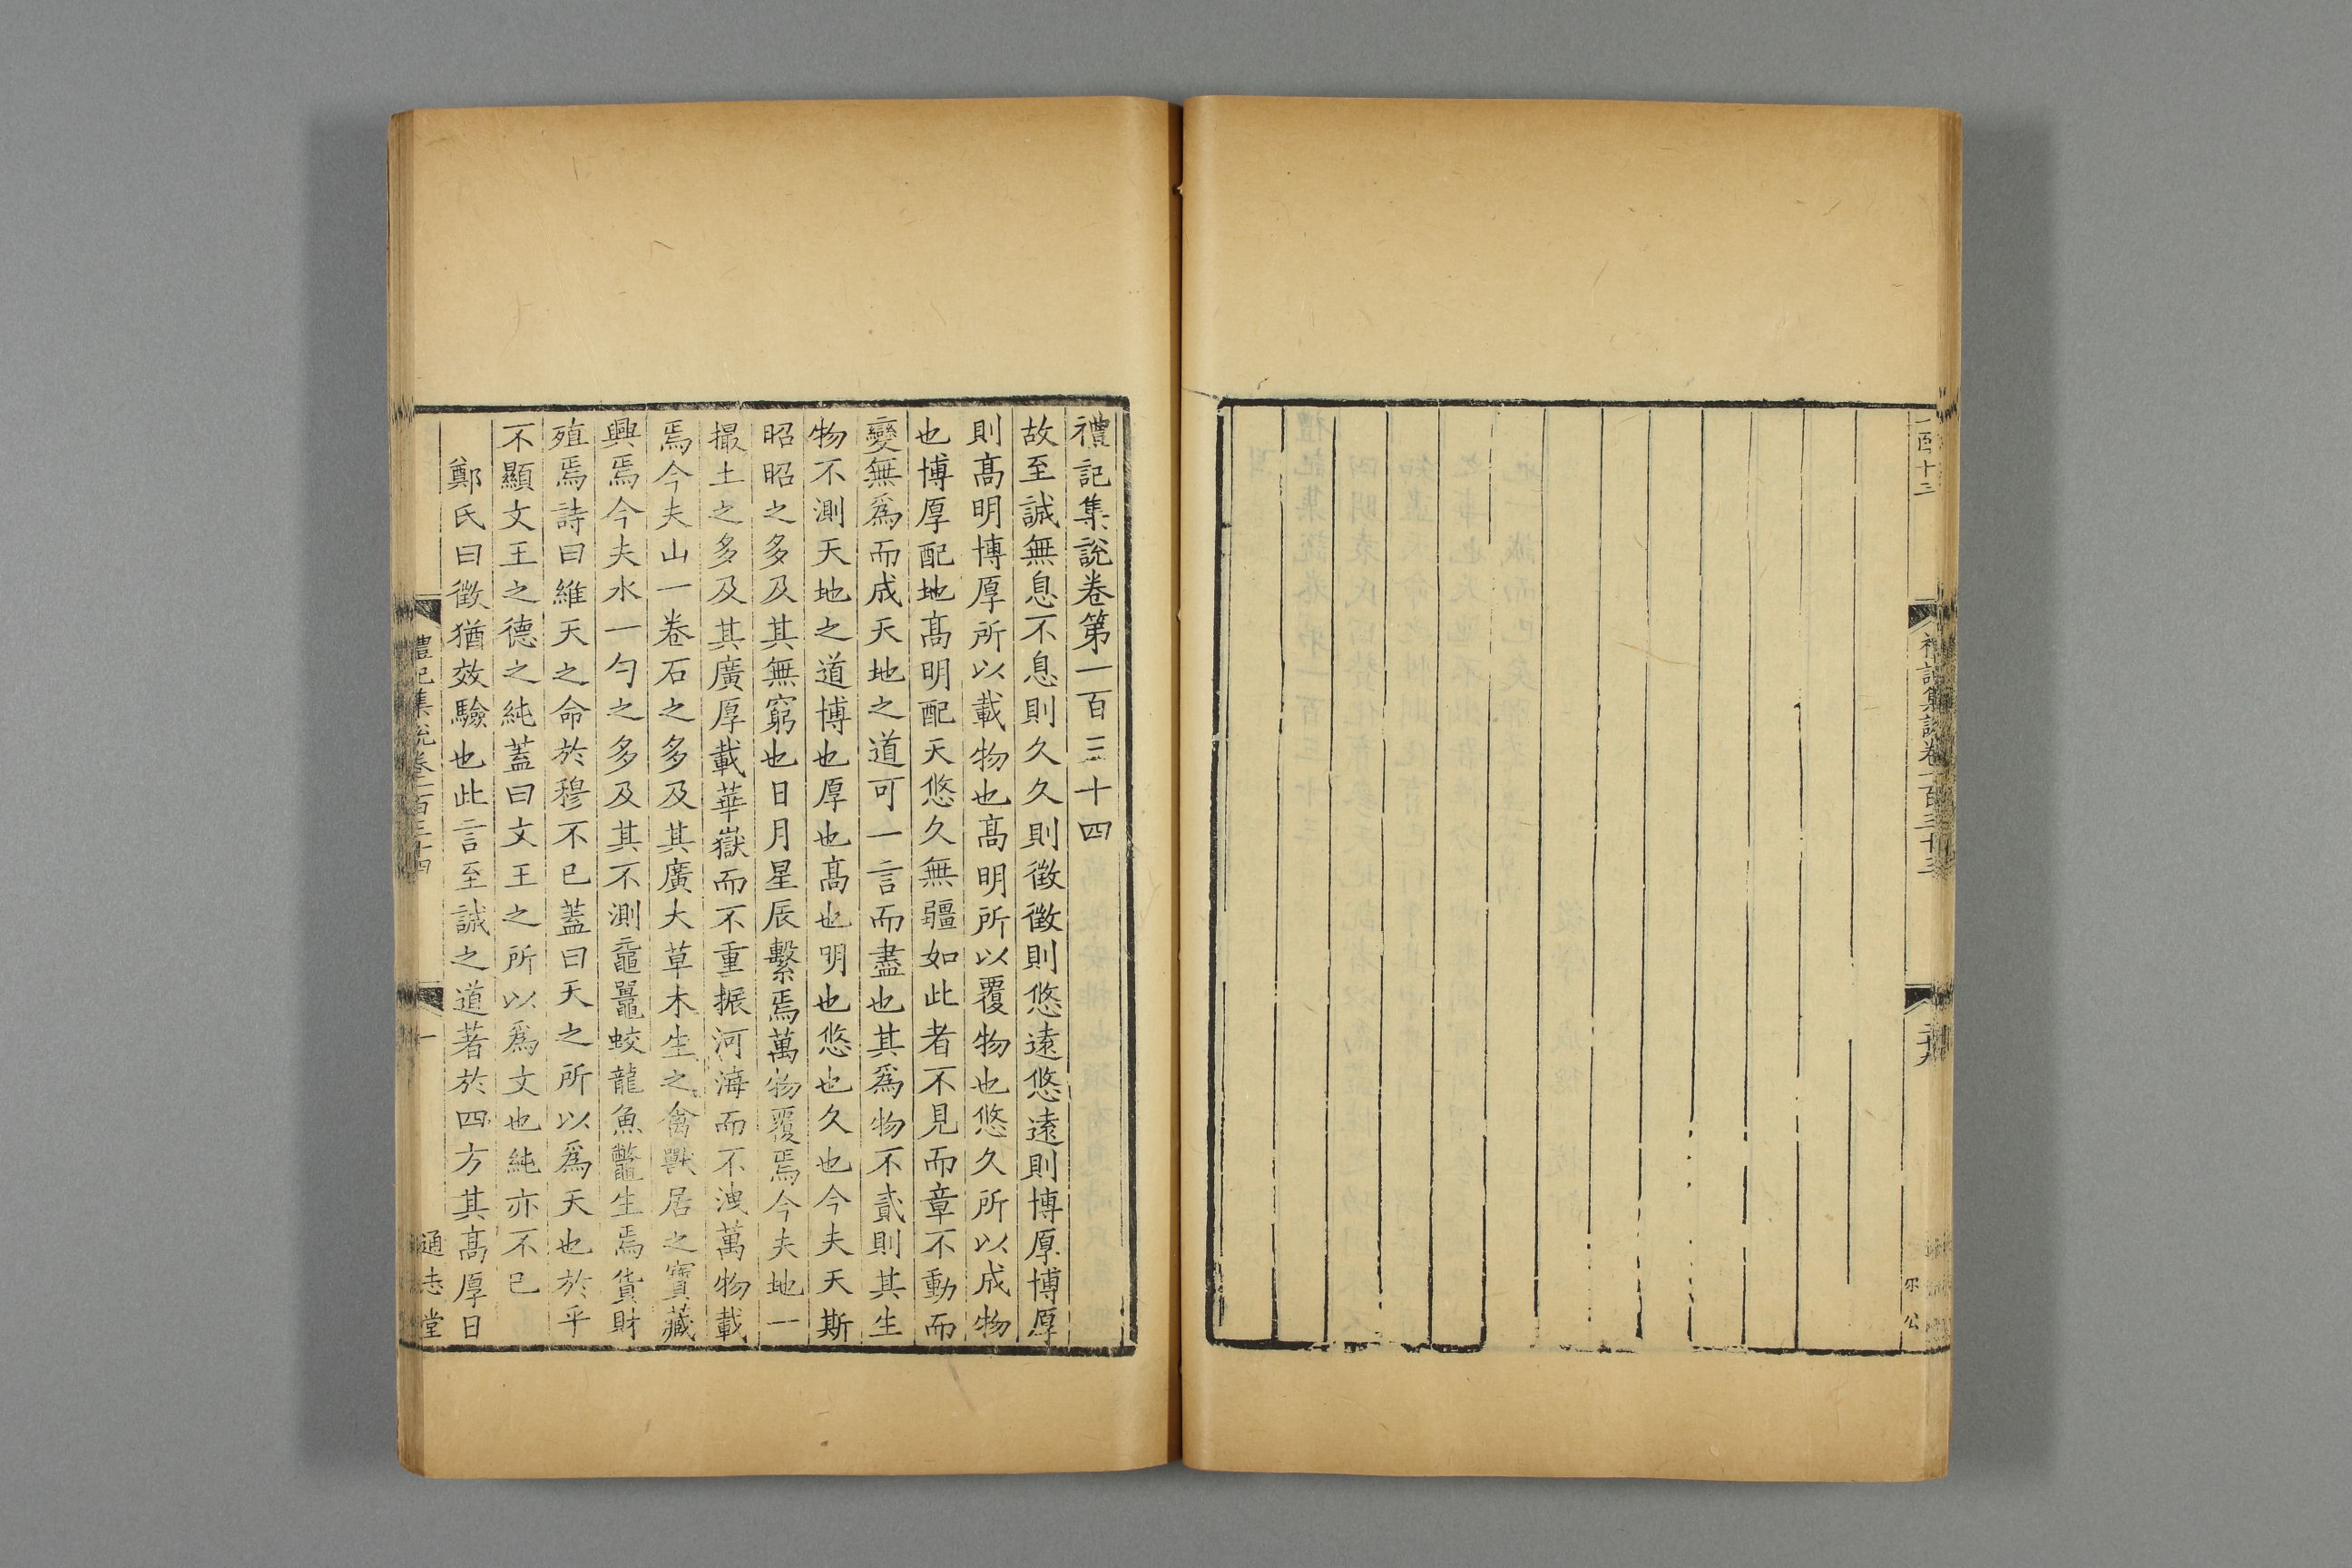 禮記集說卷一百三十三
禮記集說卷第一百三十四
故至誠無息不息則久久則徵徵則悠遠悠遠則博厚博厚
則髙明博厚所以載物也髙明所以覆物也悠久所以成物
也博厚配地髙明配天悠久無疆如此者不見而章不動而
變無爲而成天地之道可一言而盡也其爲物不貳則其生
物不測天地之道博也厚也髙也明也悠也久也今夫天斯
昭昭之多及其無窮也日月星辰繫焉萬物覆焉今夫地一
撮土之多及其廣厚載華嶽而不重振河海而不洩萬物載
焉今夫山一卷石之多及其廣大草木生之禽獸居之寶藏
興焉今夫水一勺之多及其不測黿鼉蛟龍魚鼈生焉貨財
殖焉詩曰維天之命於穆不已蓋曰天之所以爲天也於乎
不顯文王之德之純蓋曰文王之所以爲文也純亦不已
鄭氏曰徵猶效驗也此言至誠之道著於四方其髙厚日
禮記集說卷一百三十四
一
通志堂